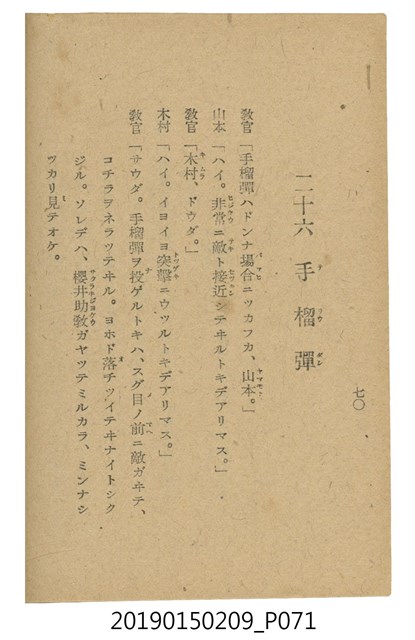 二十六 手榴彈
七〇
敎官「手榴彈ハドンナ場合ニツカフカ、山本。」
山本「ハイ。非常ニ敵ト接近シテヰルトキデアリマス。」
敎官「木村、ドウダ。」
木村「ハイ。イヨイヨ突擊ニウツルトキデアリマス。」
敎官「サウダ。手榴彈ヲ投ゲルトキハ、スグ目ノ前ニ敵ガヰテ、
コチラヲネラツテヰル。ヨホド落チツイテヰナイトシク
ジル。ソレデハ、櫻井助敎ガヤツテミルカラ、ミンナシ
ツカリ見テオケ。
20190150209_P071